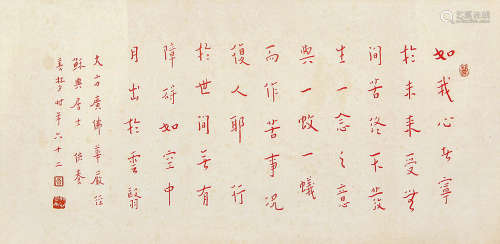 如我心者寧
於未來受無
間苦終不發
生一念之意
與一蚊一蟻
而作苦事況
復人耶 行
於世間無有
障礙如空中
月出於雲翳
大方廣佛華嚴經
居士 供養
時年六十二